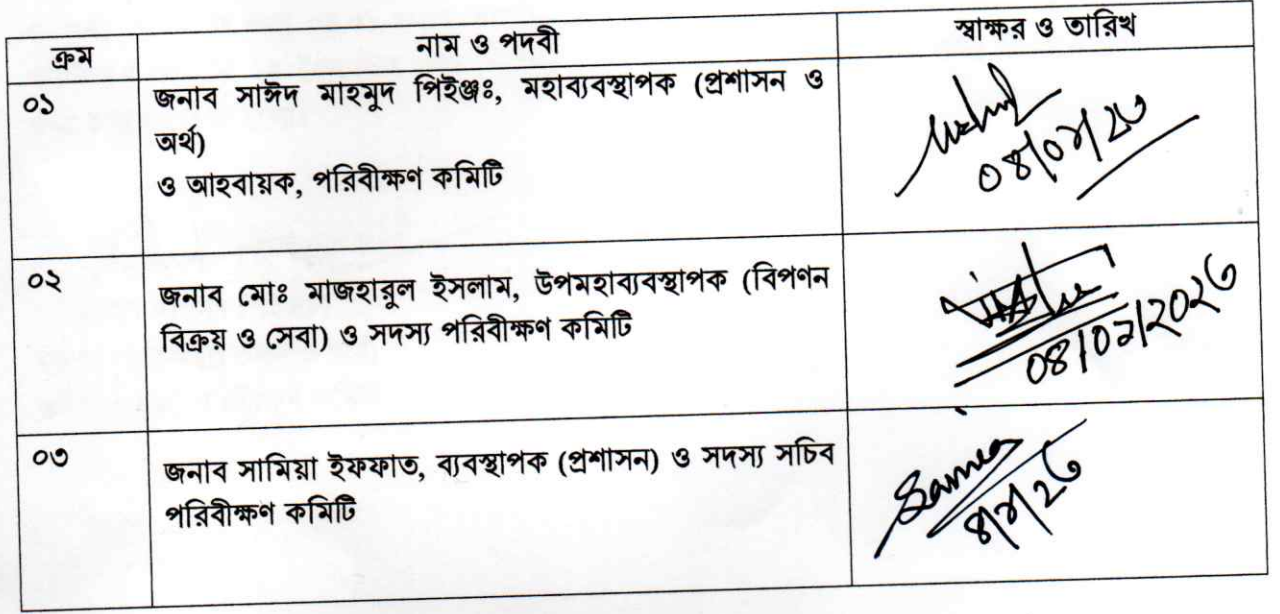 ক্রম নাম ও পদবী স্বাক্ষর ও তারিখ
০১ জনাব সাঈদ মাহমুদ পিইঞ্জঃ, মহাব্যবস্থাপক (প্রশাসন ও
অর্থ)
ও আহবায়ক, পরিবীক্ষণ কমিটি
০২ জনাব মোঃ মাজহারুল ইসলাম, উপমহাব্যবস্থাপক (বিপণন
বিক্রয় ও সেবা) ও সদস্য পরিবীক্ষণ কমিটি
০৩ জনাব সামিয়া ইফফাত, ব্যবস্থাপক (প্রশাসন) ও সদস্য সচিব
পরিবীক্ষণ কমিটি
Samia